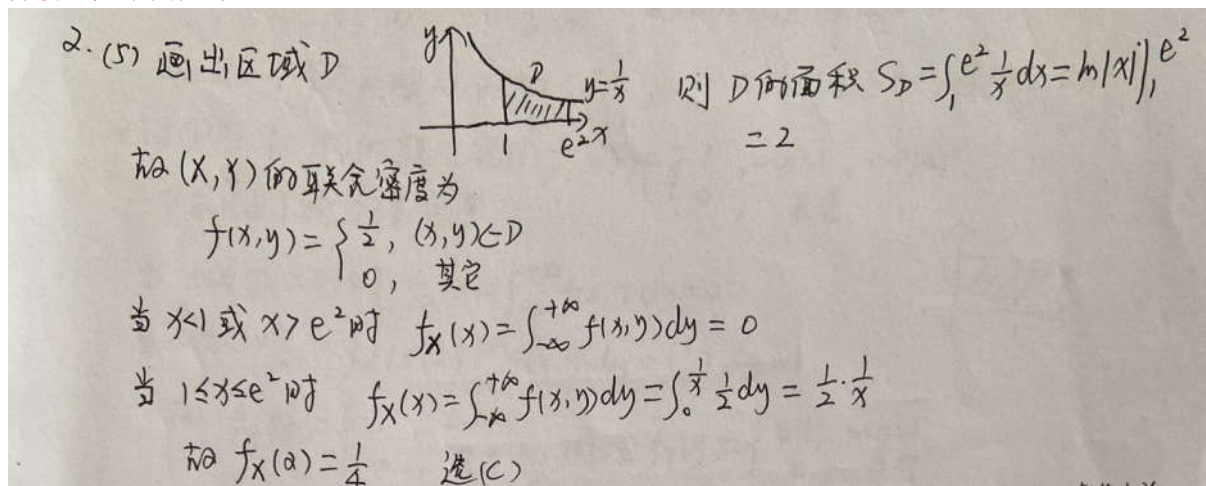 2. (5) 画出区域 D
y
D
y=1/x
1
e² x
则 D 的面积 S_D = ∫₁^{e²} 1/x dx = ln|x| |₁^{e²}
= 2
故 (X, Y) 的联合密度为
f(x,y) = { 1/2, (x,y)∈D
0, 其它
当 x<1 或 x>e² 时 f_X(x) = ∫_{-∞}^{+∞} f(x,y)dy = 0
当 1≤x≤e² 时 f_X(x) = ∫_{-∞}^{+∞} f(x,y)dy = ∫₀^{1/x} 1/2 dy = 1/2 · 1/x
故 f_X(2) = 1/4 选(C)